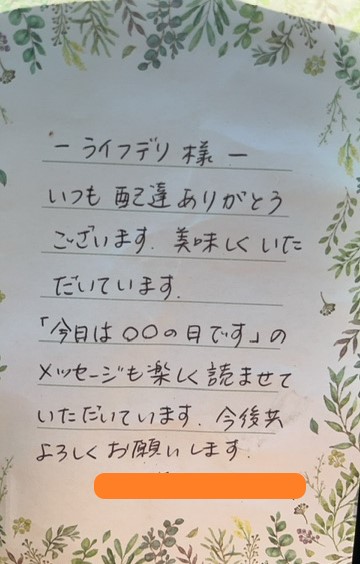 －ライフデリ様－
いつも配達ありがとう
ございます. 美味しくいた
だいています.
「今日は〇〇の日です」の
メッセージも楽しく読ませて
いただいています. 今後共
よろしくお願いします.